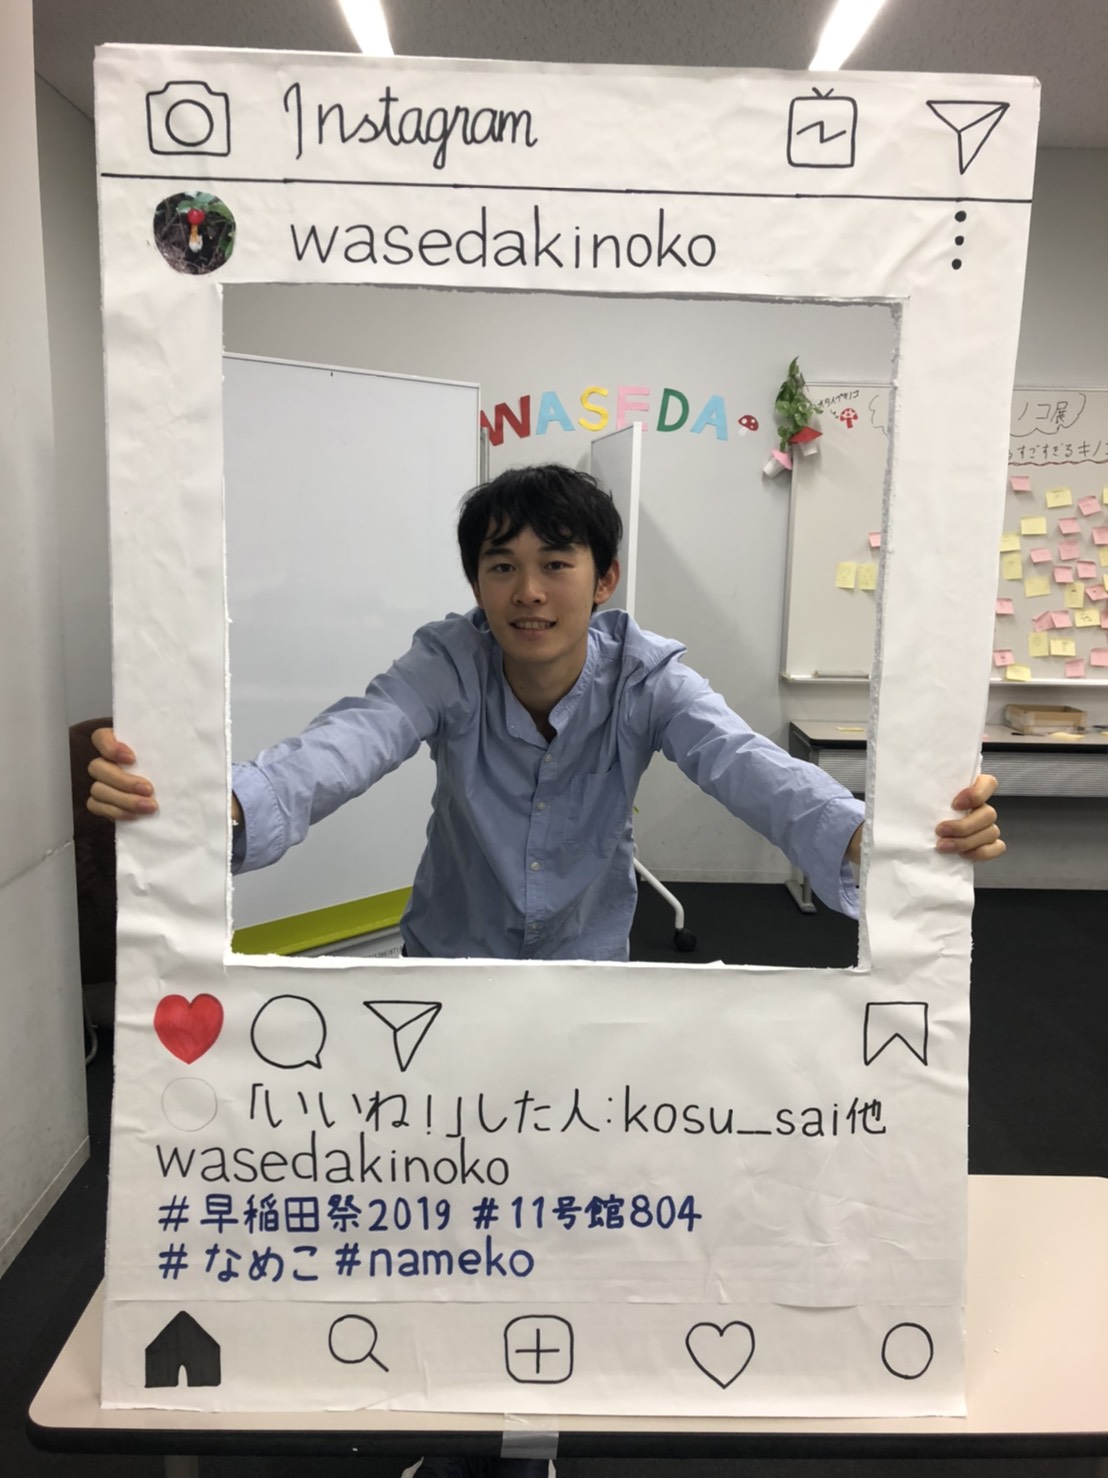 Instagram
wasedakinoko
WASEDA
ノコ展
すごすぎるキノコ
「いいね!」した人:kosu_sai他
wasedakinoko
#早稲田祭2019 #11号館804
#なめこ#nameko